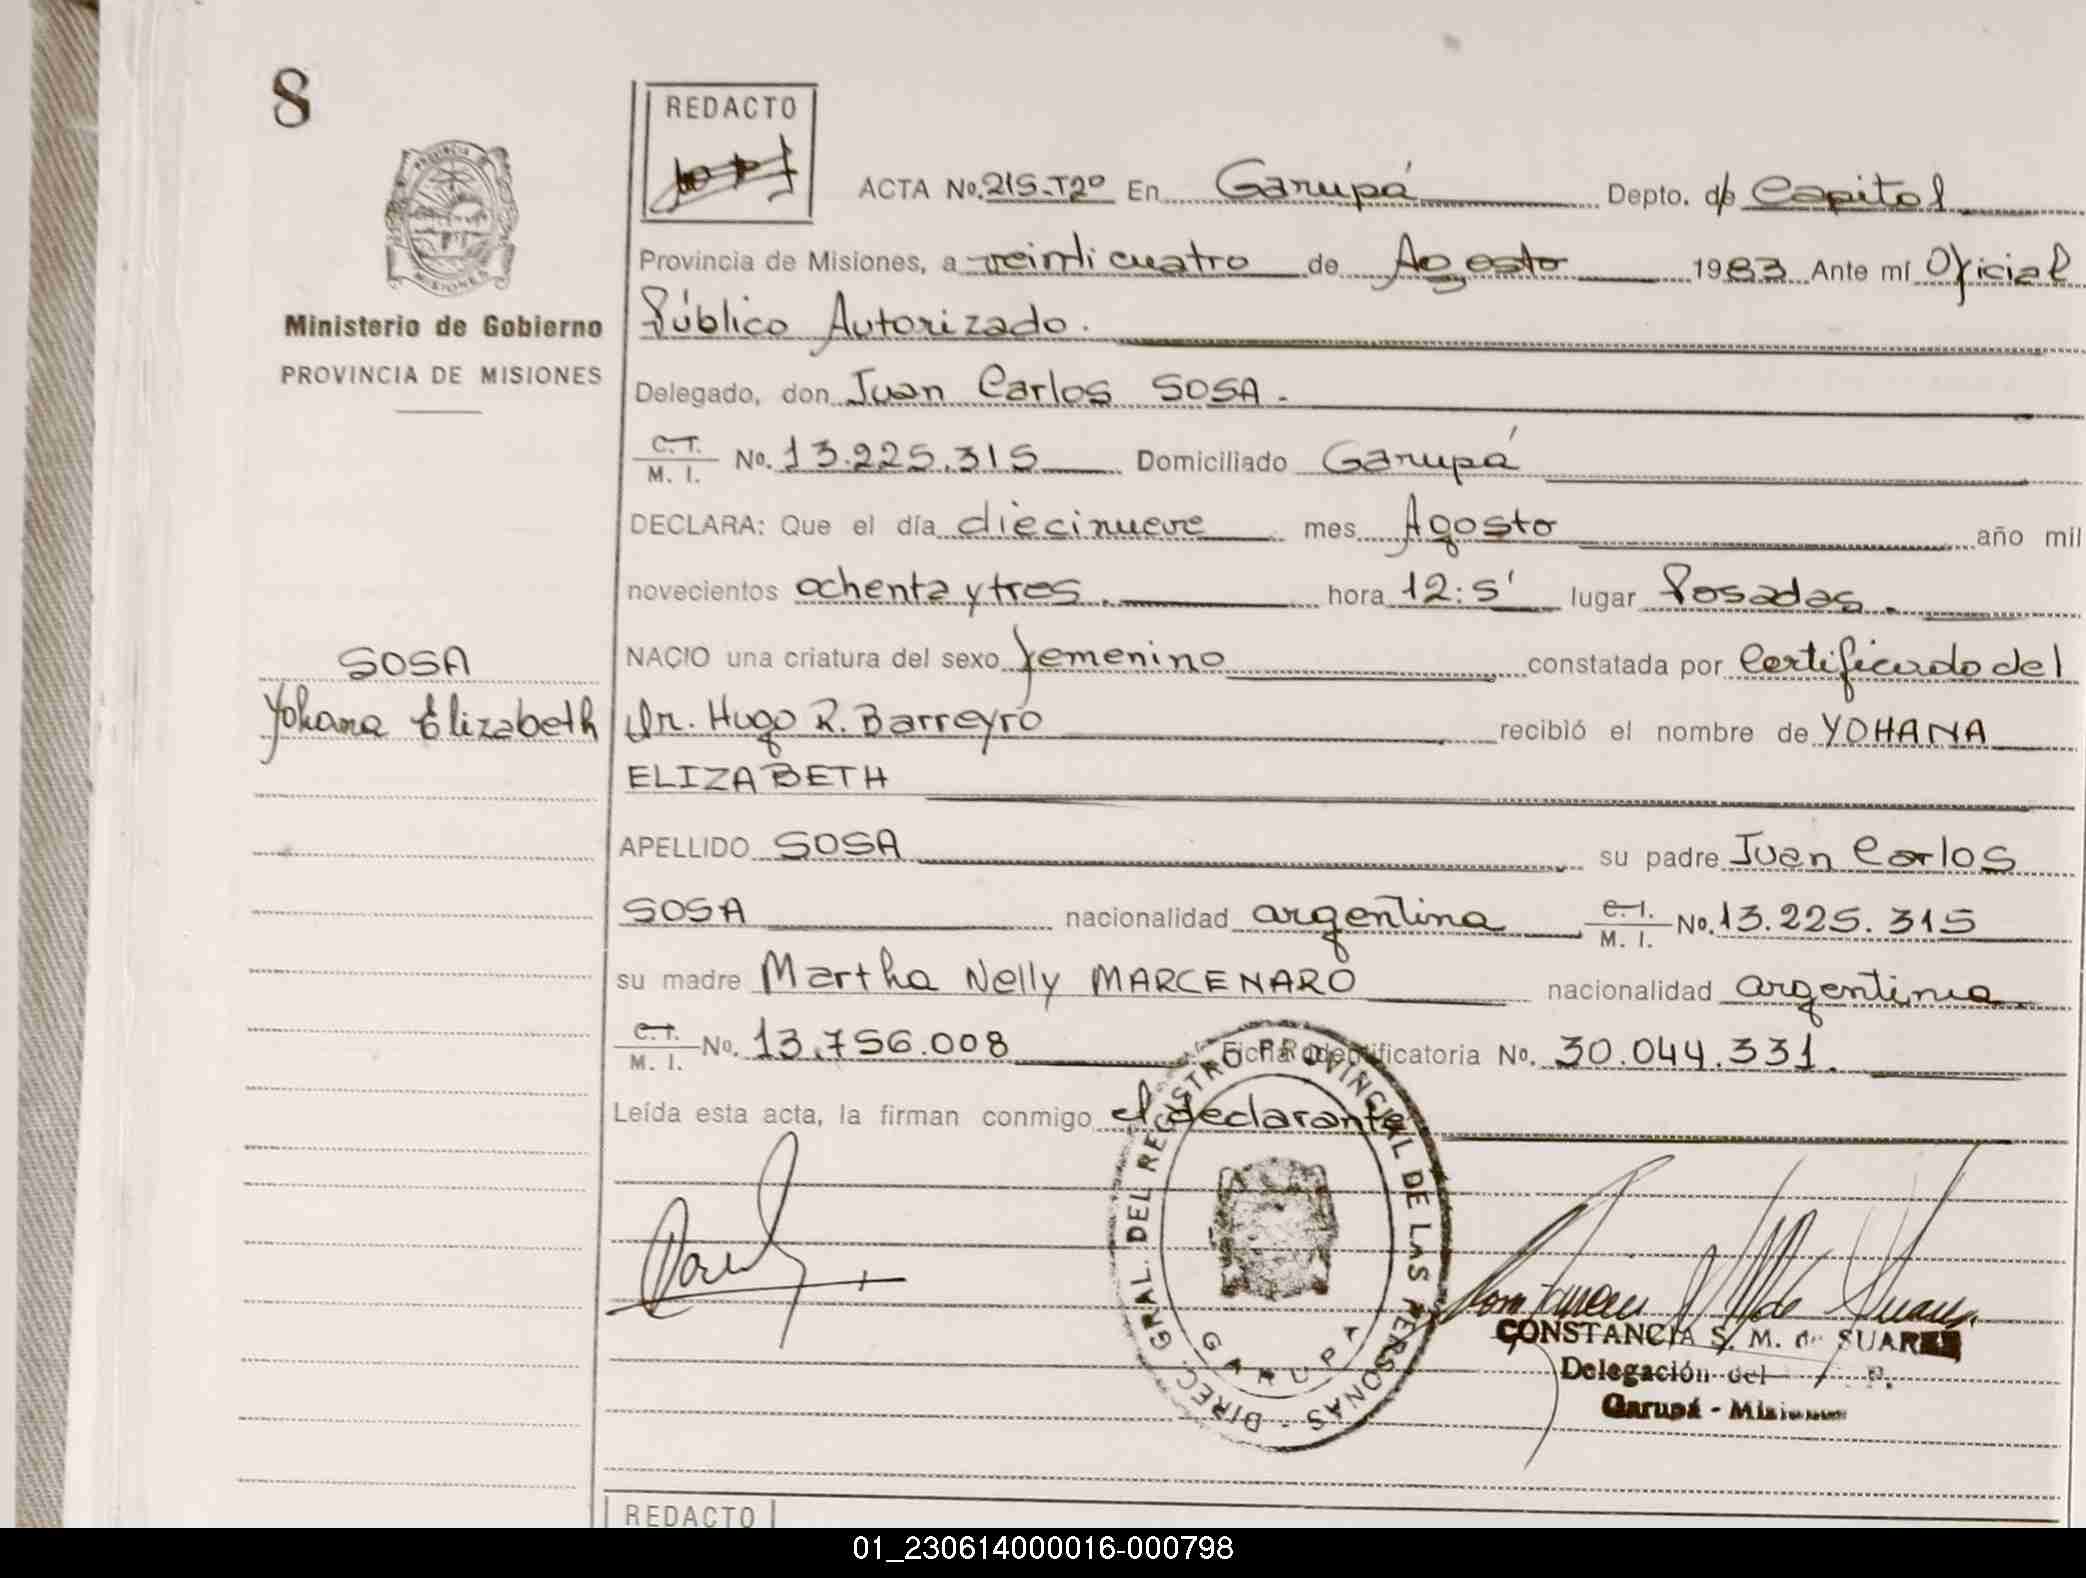 8
REDACTO
PROVINCIA
MISIONES
Ministerio de Gobierno
PROVINCIA DE MISIONES
ACTA No. 215-T2º En Garupá Depto. de Capital
Provincia de Misiones, a veinticuatro de Agosto 1983 Ante mí Oficial
Público Autorizado.
Delegado, don Juan Carlos SOSA.
C.I. M. I. No. 13.225.315 Domiciliado Garupá
DECLARA: Que el día diecinueve mes Agosto año mil
novecientos ochenta y tres. hora 12:5' lugar Posadas.
SOSA
Yohana Elizabeth
NACIO una criatura del sexo femenino constatada por Certificado del
Dr. Hugo R. Barreyro recibió el nombre de YOHANA
ELIZABETH
APELLIDO SOSA su padre Juan Carlos
SOSA nacionalidad argentina C.I. M. I. No. 13.225.315
su madre Martha Nelly MARCENARO nacionalidad argentina
C.I. M. I. No. 13.756.008 Ficha identificatoria No. 30.044.331.
Leída esta acta, la firman conmigo el declarante
DIREC. GRAL. DEL REGISTRO PROVINCIAL DE LAS PERSONAS -
GARUPA
CONSTANCIA S. M. de SUAREZ
Delegación del P.
Garupá - Misiones
REDACTO
01_230614000016-000798